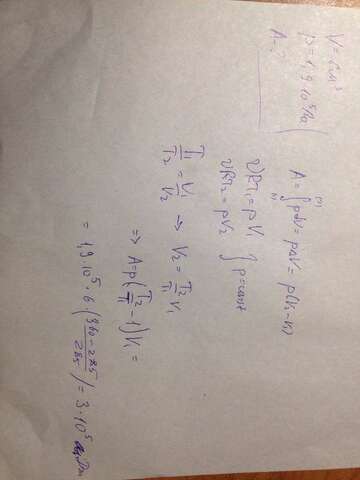 V = 6 м³
p = 1,9 · 10⁵ Па
A - ?
A = ∫₍₁₎⁽²⁾ p dV = pΔV = p(V₂ - V₁)
νRT₁ = pV₁
νRT₂ = pV₂ } p = const
T₁/T₂ = V₁/V₂ → V₂ = T₂/T₁ V₁
⇒ A = p(T₂/T₁ - 1)V₁ =
= 1,9 · 10⁵ · 6 (360 - 285 / 285) = 3 · 10⁵ Дж